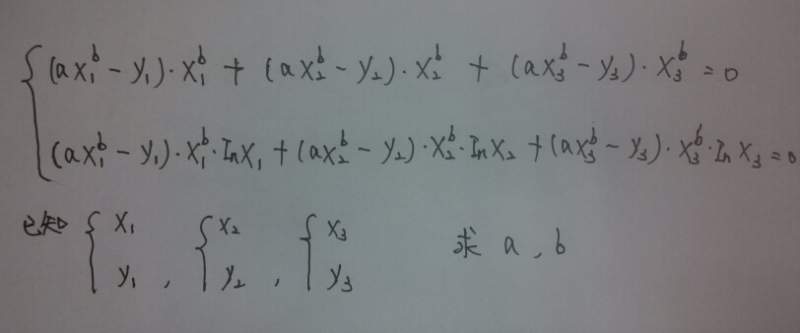 (ax₁ᵇ - y₁)·x₁ᵇ + (ax₂ᵇ - y₂)·x₂ᵇ + (ax₃ᵇ - y₃)·x₃ᵇ = 0
(ax₁ᵇ - y₁)·x₁ᵇ·In x₁ + (ax₂ᵇ - y₂)·x₂ᵇ·In x₂ + (ax₃ᵇ - y₃)·x₃ᵇ·In x₃ = 0
已知 { x₁ { x₂ { x₃ 求 a , b
y₁ , y₂ , y₃